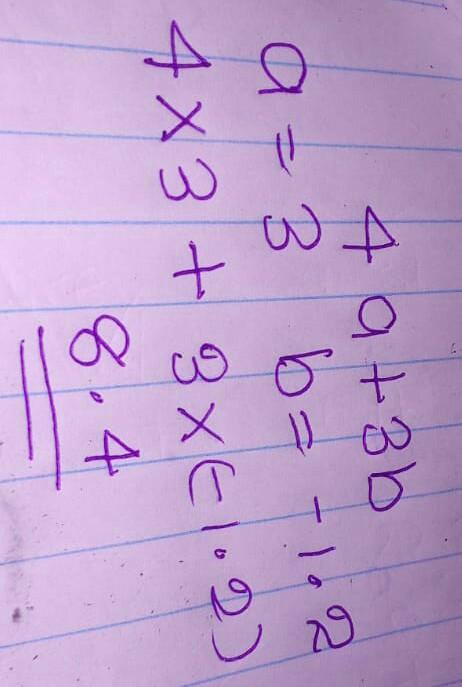 4a+3b
a = 3 b = -1.2
4 x 3 + 3 x (-1.2)
8.4